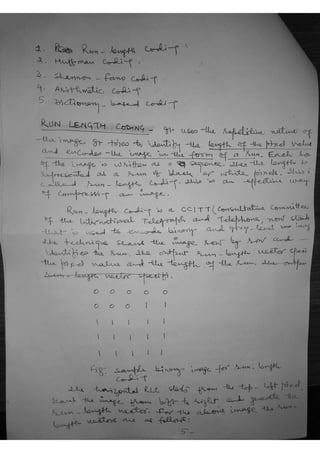 1. Run-length Coding
2. Huffman Coding
3. Shannon-Fano Coding
4. Arithmetic Coding
5. Dictionary-based Coding
RUN LENGTH CODING - It uses the repetitive nature of
the image. It tries to identify the length of the pixel value
and encodes the image in the form of a run. Each
of the image is written as a sequence. Then the length is
represented as a run of black or white pixels. This
called run-length coding. This is an effective way
of compressing an image.
Run-length Coding is a CCITT (Consultative Committee
of the International Telegraph and Telephone, now
that is used to encode binary and grey-level
The technique scans the image row by row and
identifies the run. The output run-length vector
the pixel value and the length of the run. The output
run-length vector
0 0 0 0 0
0 0 0 1 1
1 1 1 1 1
1 1 1 1 1
1 1 1 1 1
Fig. Sample binary image for run-length
Coding
The horizontal RLC starts from the top-left pixel,
scans the image from left to right and generates the
run-length vector. For the above image the run-
length vectors are as follows:
5-